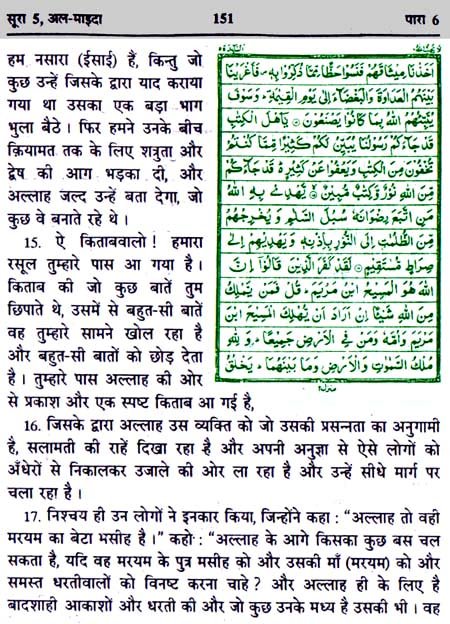 सूरा 5, अल-माइदा 151 पारा 6
हम नसारा (ईसाई) हैं, किन्तु जो
कुछ उन्हें जिसके द्वारा याद कराया
गया था उसका एक बड़ा भाग
भुला बैठे। फिर हमने उनके बीच
क़ियामत तक के लिए शत्रुता और
द्वेष की आग भड़का दी, और
अल्लाह जल्द उन्हें बता देगा, जो
कुछ वे बनाते रहे थे।
15. ऐ किताबवालो! हमारा
रसूल तुम्हारे पास आ गया है।
किताब की जो कुछ बातें तुम
छिपाते थे, उसमें से बहुत-सी बातें
वह तुम्हारे सामने खोल रहा है
और बहुत-सी बातों को छोड़ देता
है। तुम्हारे पास अल्लाह की ओर
से प्रकाश और एक स्पष्ट किताब आ गई है,
اخذنا ميثاقهم فنسوا حظا مما ذكروا به فاغرينا
بينهم العداوة والبغضاء الى يوم القيمة وسوف
ينبئهم الله بما كانوا يصنعون يأهل الكتب
قد جاءكم رسولنا يبين لكم كثيرا مما كنتم
تخفون من الكتب ويعفوا عن كثير قد جاءكم
من الله نور وكتب مبين يهدي به الله
من اتبع رضوانه سبل السلم ويخرجهم
من الظلمت الى النور باذنه ويهديهم الى
صراط مستقيم لقد كفر الذين قالوا ان
الله هو المسيح ابن مريم قل فمن يملك
من الله شيئا ان اراد ان يهلك المسيح ابن
مريم وامه ومن في الارض جميعا ولله
ملك السموت والارض وما بينهما يخلق
16. जिसके द्वारा अल्लाह उस व्यक्ति को जो उसकी प्रसन्नता का अनुगामी
है, सलामती की राहें दिखा रहा है और अपनी अनुज्ञा से ऐसे लोगों को
अँधेरों से निकालकर उजाले की ओर ला रहा है और उन्हें सीधे मार्ग पर
चला रहा है।
17. निश्चय ही उन लोगों ने इनकार किया, जिन्होंने कहा : "अल्लाह तो वही
मरयम का बेटा मसीह है।" कहो : "अल्लाह के आगे किसका कुछ बस चल
सकता है, यदि वह मरयम के पुत्र मसीह को और उसकी माँ (मरयम) को और
समस्त धरतीवालों को विनष्ट करना चाहे? और अल्लाह ही के लिए है
बादशाही आकाशों और धरती की और जो कुछ उनके मध्य है उसकी भी। वह